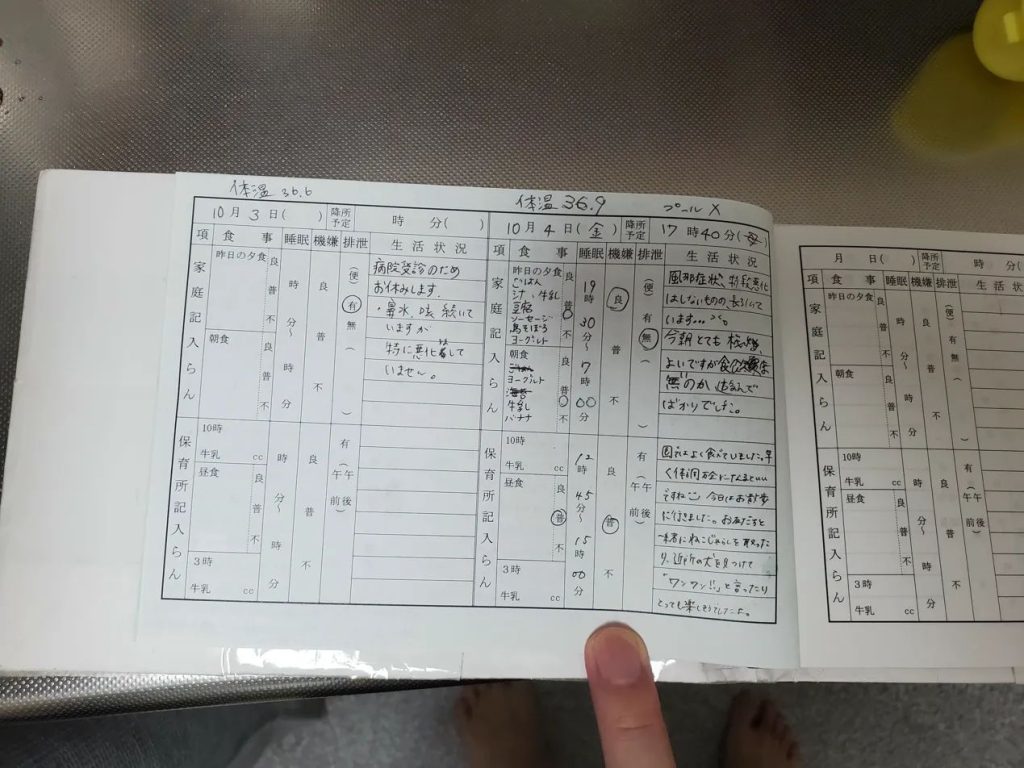 体温 36.6
10月3日( ) 降所予定 時 分( )
項 食事 睡眠 機嫌 排泄 生活状況
家庭記入らん
昨日の夕食 良 普 不
朝食 良 普 不
時 分〜 時 分
良 普 不
(便) 有 無 ( )
病院受診のため
お休みします。
・鼻水、咳 続いて
いますが
特に悪化して
いません。
保育所記入らん
10時
牛乳 cc
昼食 良 普 不
3時
牛乳 cc
時 分〜 時 分
良 普 不
有 (午前 午後)
体温 36.9 プール X
10月4日(金) 降所予定 17時40分(母)
項 食事 睡眠 機嫌 排泄 生活状況
家庭記入らん
昨日の夕食 良 普 不
ごはん
牛乳
豆腐
ソーセージ
鳥そぼろ
ヨーグルト
朝食 良 普 不
ごはん
ヨーグルト
海苔
牛乳
バナナ
19時30分〜7時00分
良 普 不
(便) 有 無 ( )
風邪症状、特段悪化
はしないものの長引いて
います…
今朝とても機嫌
よいですが食欲は
無いのか、遊んで
ばかりでした。
保育所記入らん
10時
牛乳 cc
昼食 良 普 不
3時
牛乳 cc
12時45分〜15時00分
良 普 不
有 (午前 午後)
園ではよく食べていました。早
く体調万全になるといい
ですね 今日はお散歩
に行きました。お友だちと
一緒にねこじゃらしを取った
り、近所の犬を見つけて
「ワンワン!!」と言ったり
とっても楽しそうでしたよ。
月 日( ) 降所予定 時 分(
項 食事 睡眠 機嫌 排泄 生活状
家庭記入らん
昨日の夕食 良 普 不
朝食 良 普 不
時 分〜 時 分
良 普 不
(便) 有 無 ( )
保育所記入らん
10時
牛乳 cc
昼食 良 普 不
3時
牛乳 cc
時 分〜 時 分
良 普 不
有 (午前 午後)